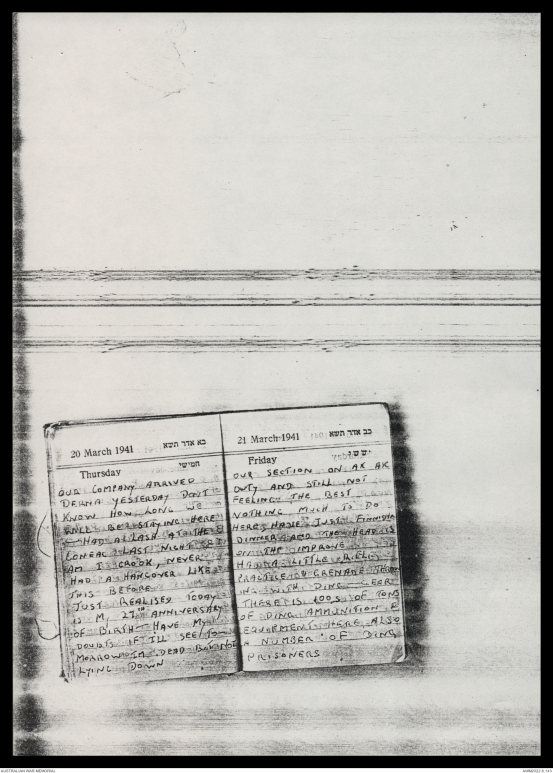 20 March 1941 כא אדר תשא
Thursday חמישי
OUR COMPANY ARRIVED
DERNA YESTERDAY DON'T
KNOW HOW LONG WE
WILL BE STAYING HERE
HAD A LASH AT THE
LAST NIGHT
AM I CROOK, NEVER
HAD A HANGOVER LIKE
THIS BEFORE
JUST REALISED TODAY
IS M, 27TH ANNIVERSARY
OF BIRTH HAVE MY
DOUBTS IF I'LL SEE TOM
MORROW IM DEAD BUT
LYING DOWN
21 March 1941 כב אדר תשא
Friday ששי
OUR SECTION ON AK AK
DUTY AND STILL NOT
FEELING THE BEST
NOTHING MUCH TO DO
HERE, HAVE JUST FINNISH
DINNER AND THE HEAD IS
ON THE IMPROVE
HAD A LITTLE RIFLE
PRACTICE & GRENADE THROW
ING WITH DING GEAR
THERE IS 100S OF TONS
OF DING AMMUNITION &
EQUIPMENT HERE ALSO
A NUMBER OF DING
PRISONERS
AUSTRALIAN WAR MEMORIAL